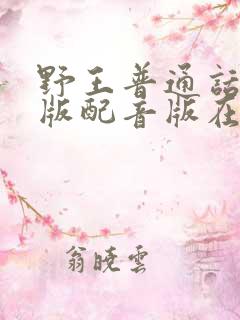 野王普通话
版配音版在
翁晓雲